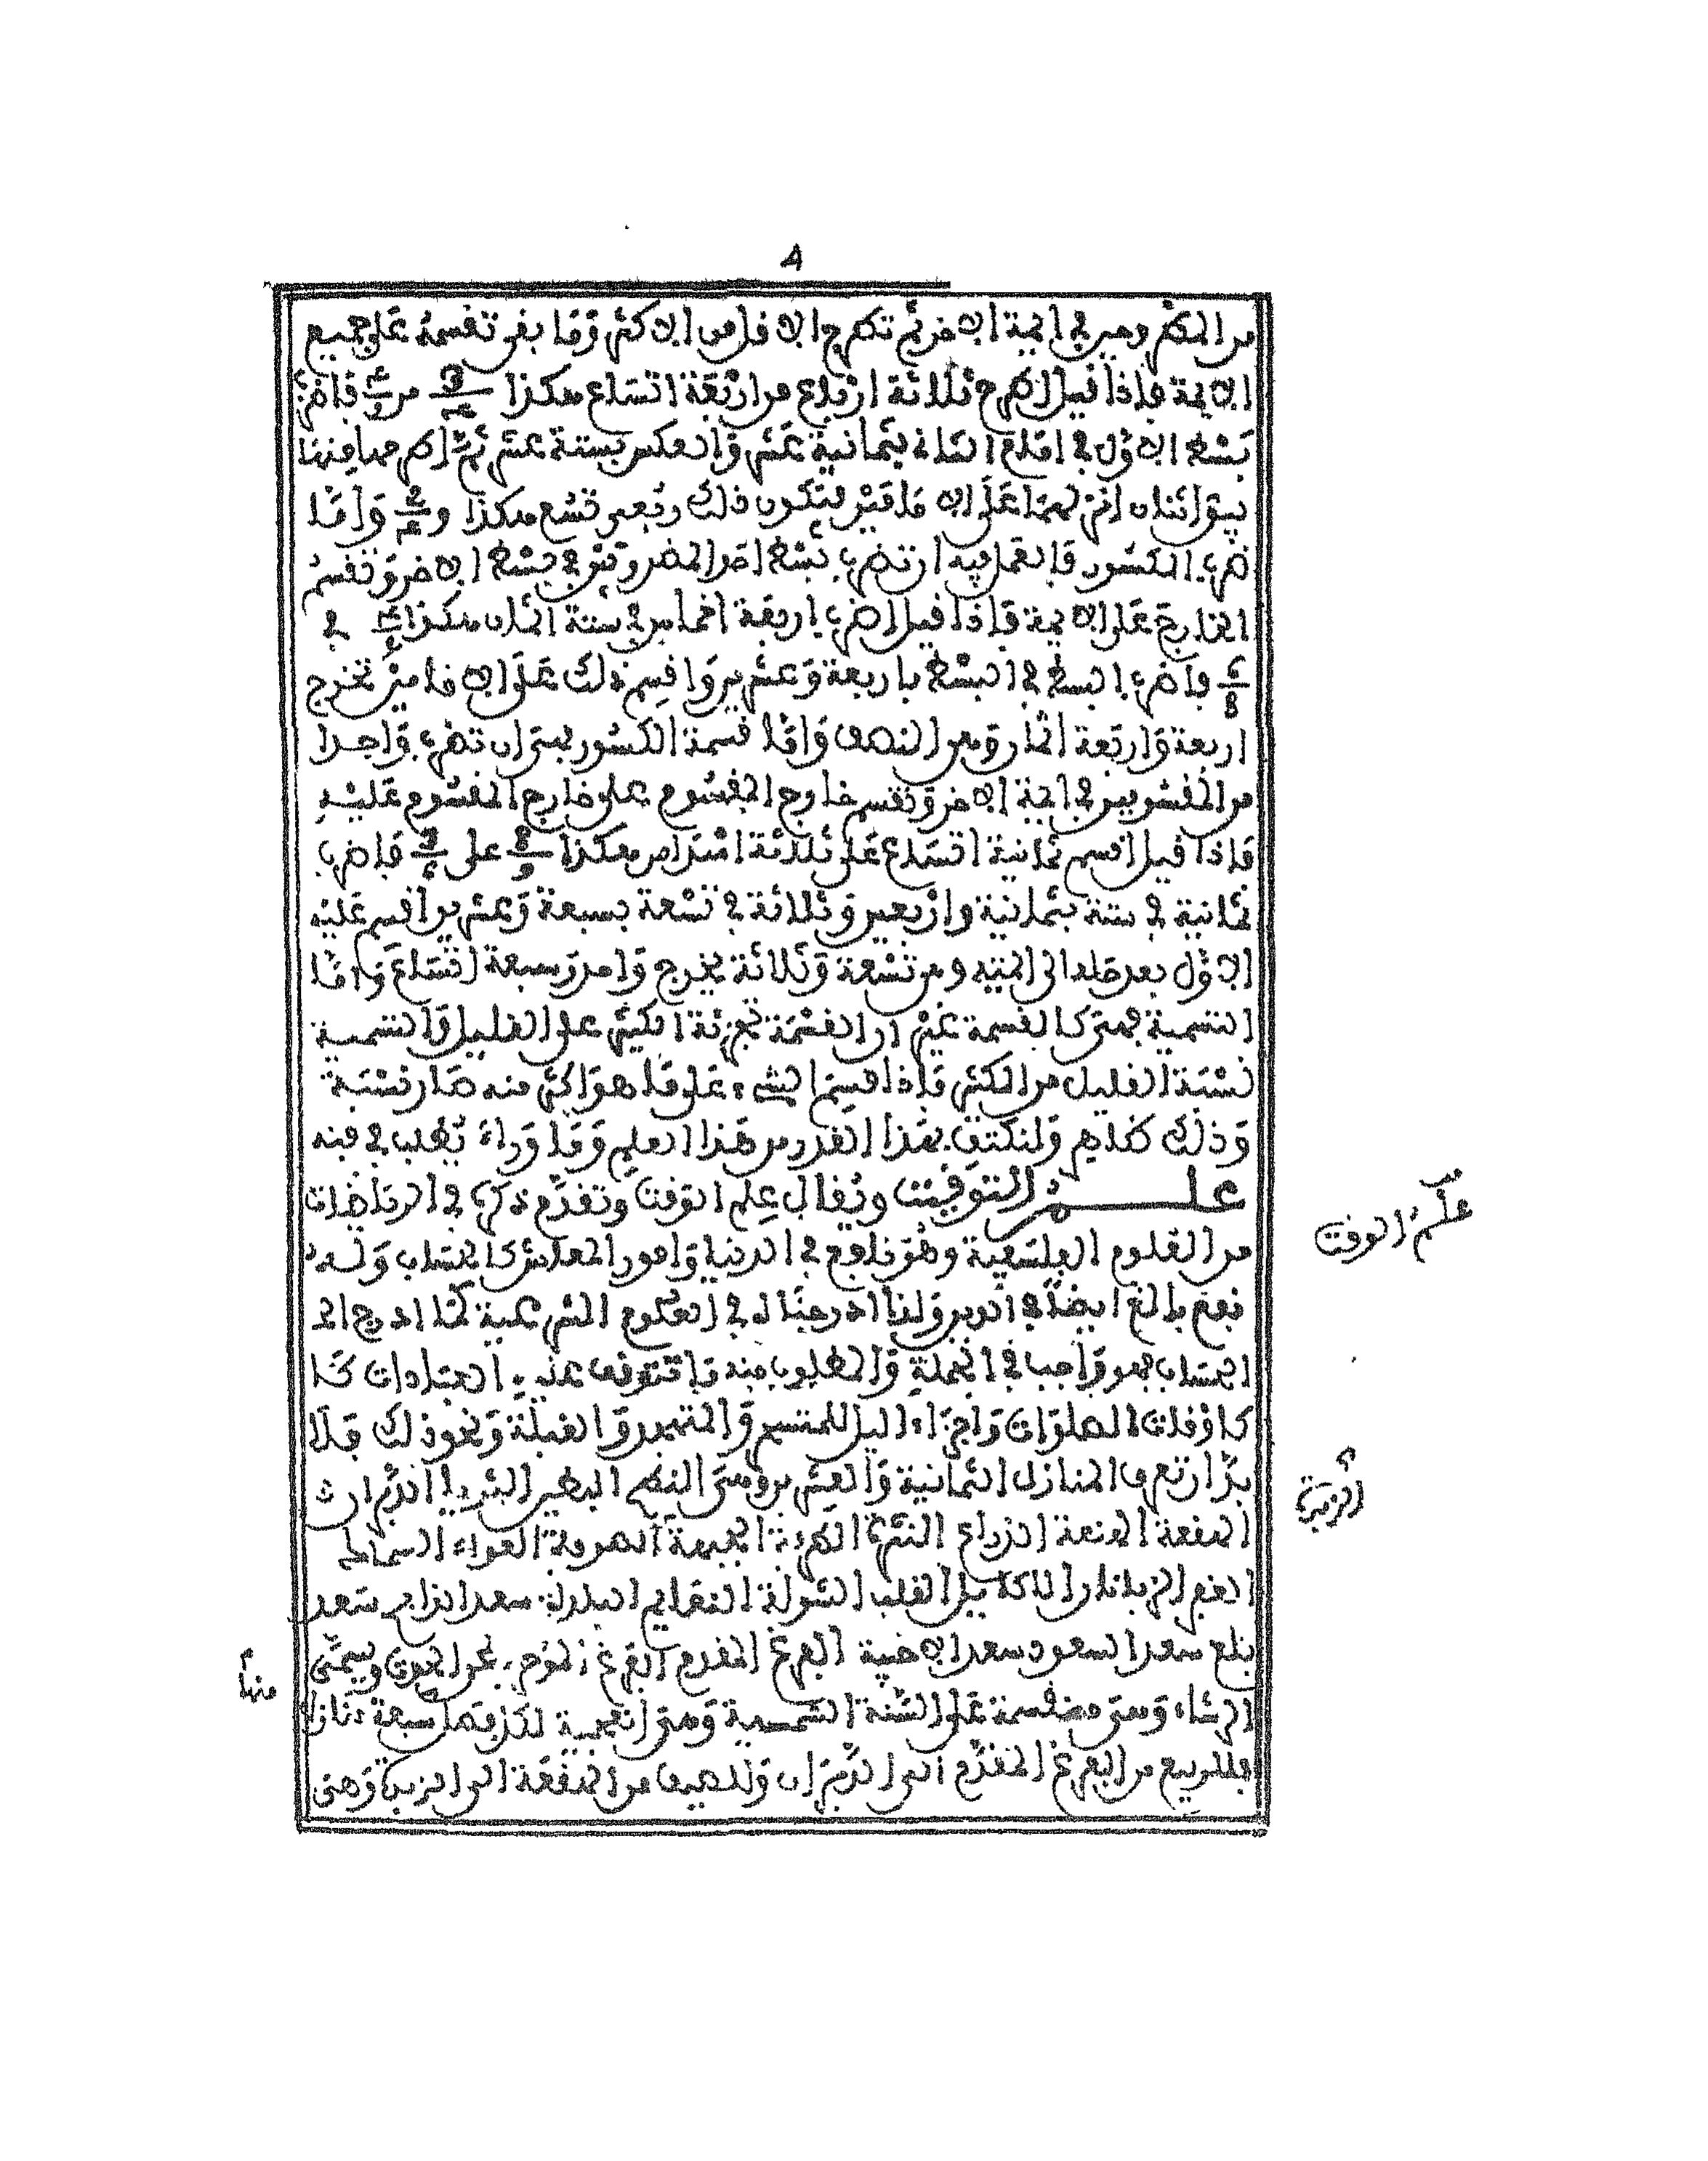 من المطروحين في أيمة الآخر ثم تطرح الأقل من الأكثر وما بقي تقسمه على جميع
الأيمة فإذا قيل اطرح ثلاثة أرباع من أربعة أتساع هكذا 3/4 من 4/9 فاضرب
بسط الأول في إمام الثاني بثمانية عشر والعكس بستة عشر ثم اطرحها منها
يبقى اثنان اقسمهما على الإمامين فتكون ذلك ربعي تسع هكذا و 2/4 وأما
ضرب الكسور فالعمل فيه أن تضرب بسط أحد المضروبين في بسط الآخر وتقسم
الخارج على الأيمة فإذا قيل اضرب أربعة أخماس في ستة أثمان هكذا 4/5 في
6/8 فاضرب البسط في البسط بأربعة وعشرين واقسم ذلك على الإمامين تخرج
أربعة وأربعة أثمان وهي النصف وأما قسمة الكسور فهي أن تضرب واحدا
من المقسومين في أيمة الآخر وتقسم خارج المقسوم على خارج المقسوم عليه
فإذا قيل اقسم ثمانية أتساع على ثلاثة أسداس هكذا 8/9 على 3/6 فاضرب
ثمانية في ستة بثمانية وأربعين وثلاثة في تسعة بسبعة وعشرين اقسم عليه
الأول بعد حله إلى أيمته وهي تسعة وثلاثة يخرج واحد وسبعة أتساع وأما
التسمية فهي كالقسمة غير أن القسمة تجزئة الكثير على القليل والتسمية
نسبة القليل من الكثير فإذا قسم الشيء على ما هو أكثر منه صار نسبة
وذلك ظاهر ولنكتف بهذا القدر من هذا العلم وما وراءه يطلب في فنه
علم التوقيت ويقال علم الوقت وتقدم ذكره في الرياضات
من العلوم الفلسفية وهو نافع في الدنيا وأمور المعاش كالحساب وله
نفع بالغ أيضا في الدين ولذا أدرجناه في العلوم الشرعية كما أدرج
الحساب فهو واجب في الجملة والمطلوب منه ما تتوقف عليه العبادات
كأوقات الصلوات وأجزاء الليل للمتسحر والمتهجد والقبلة ونحو ذلك فلا
بد أن تعرف المنازل الثمانية والعشرين وهي النطح البطين الثريا الدبران
الهقعة الهنعة الذراع النثرة الطرفة الجبهة الصرفة العواء السماك
الغفر الزبانان الإكليل القلب الشولة النعايم البلدة سعد الذابح سعد
بلع سعد السعود سعد الأخبية الفرغ المقدم الفرغ المؤخر بطن الحوت ويسمى
الرشاء وهي منقسمة على السنة الشمسية وهي العجمية لكل فصل سبعة منازل
فللربيع من الفرغ المقدم إلى الدبران وللصيف من الهقعة إلى الزبرة وهي
علم الوقت
الزبرة
منها